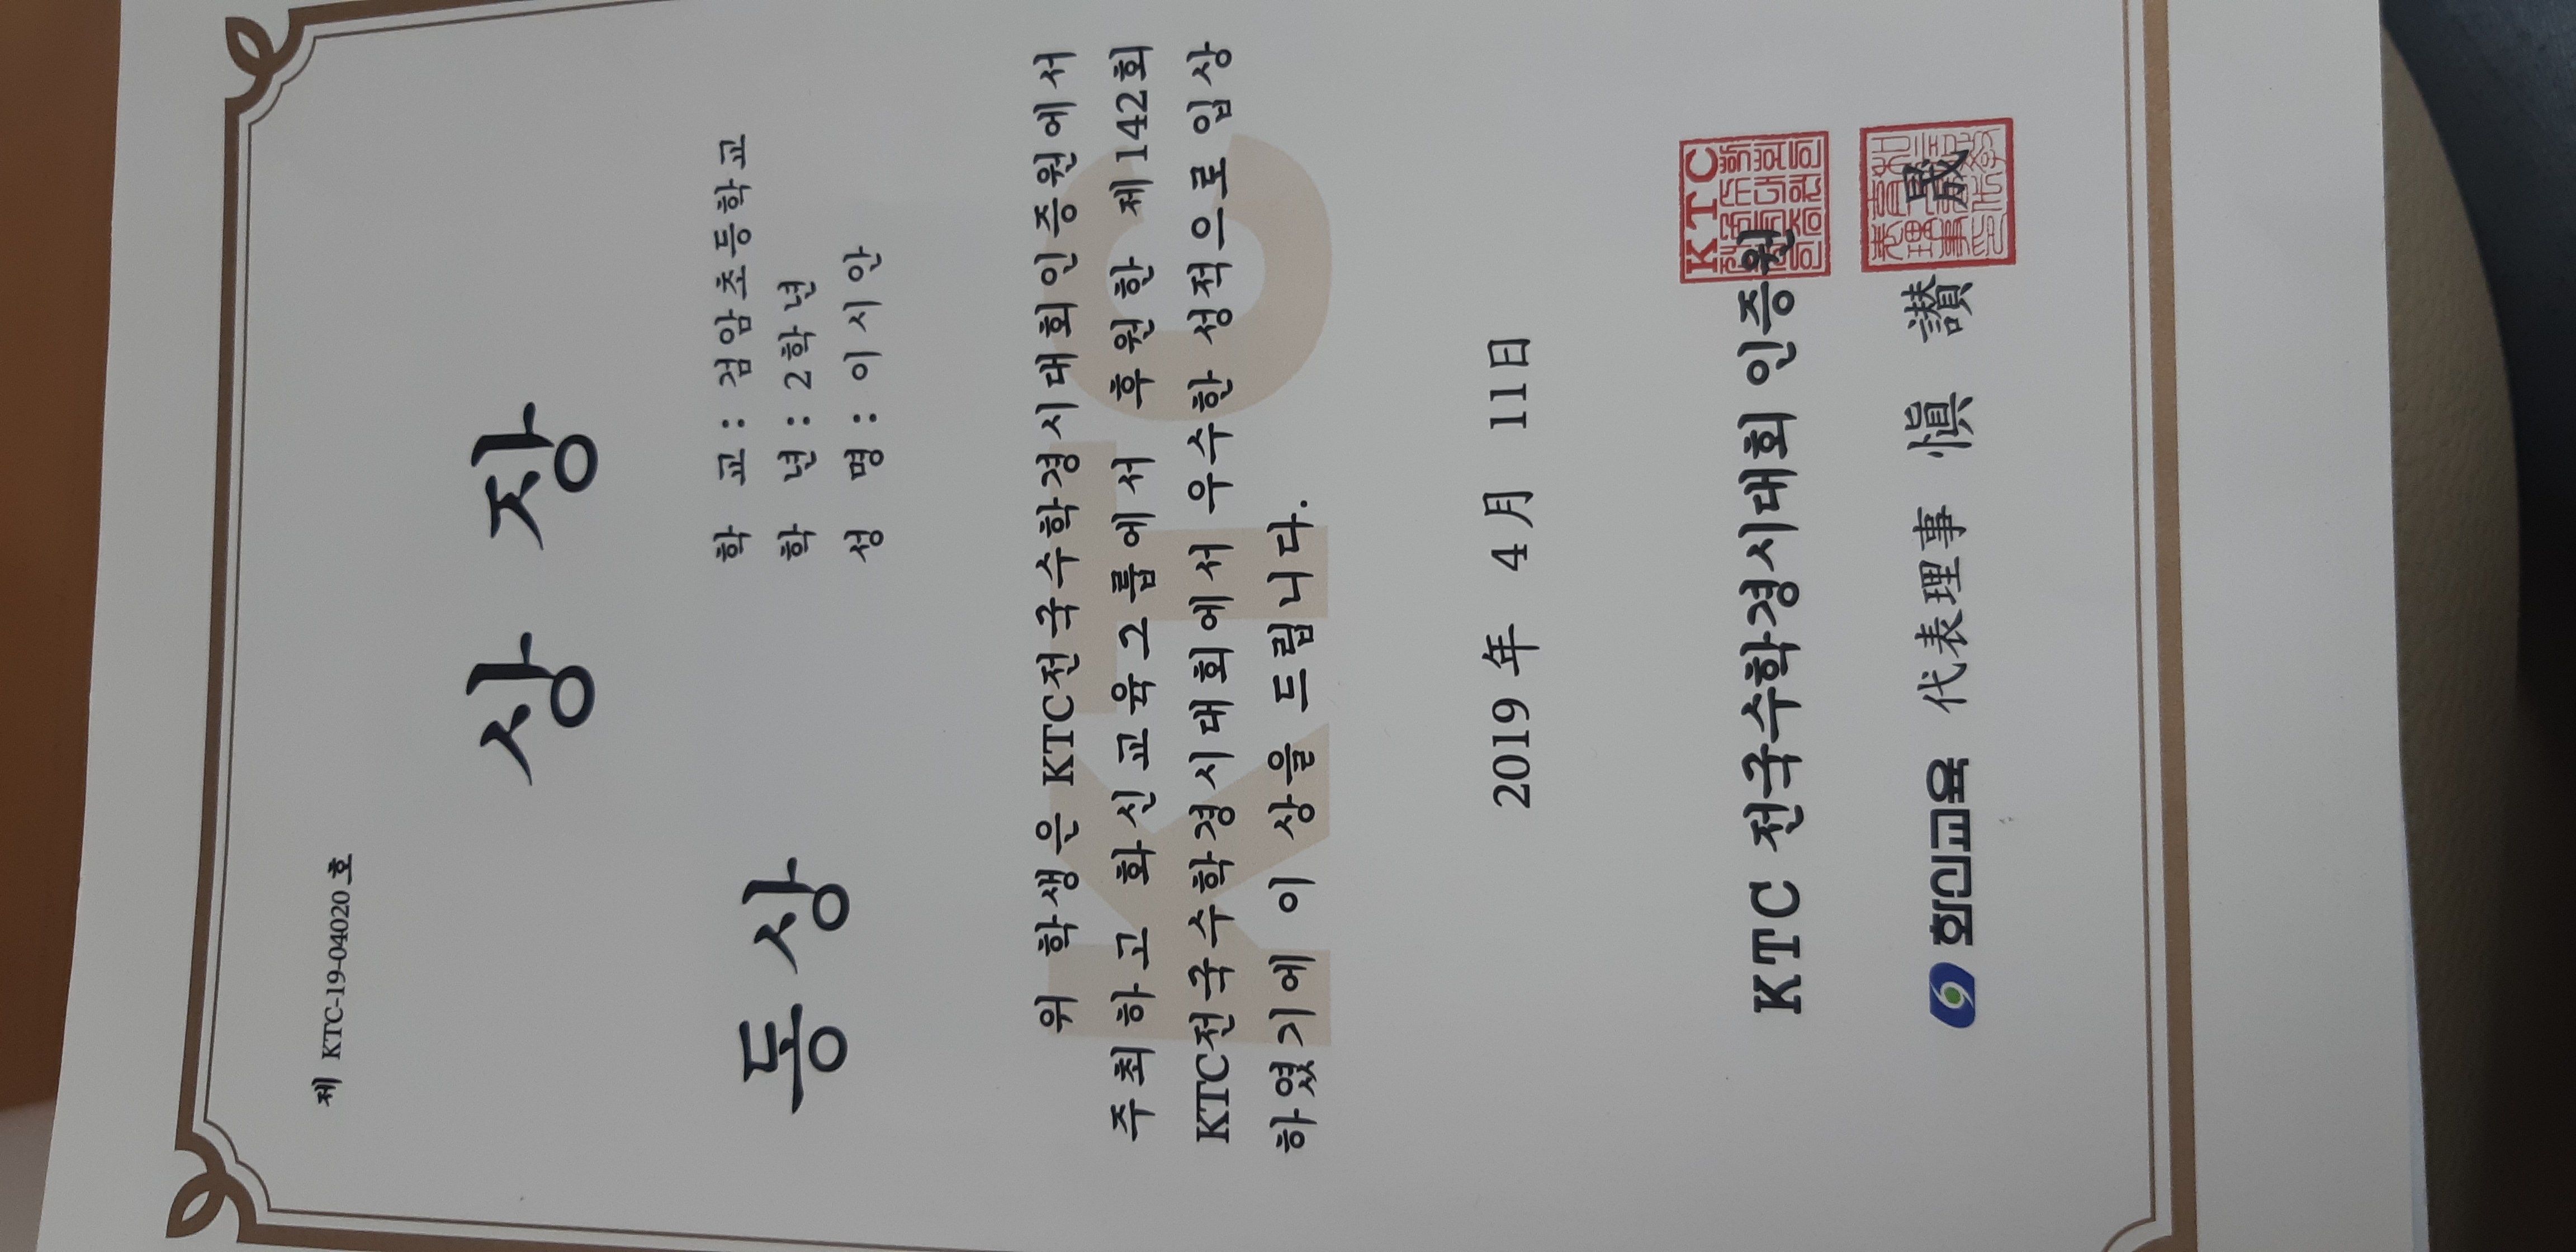 제 KTC-19-04020 호
상 장
동상
학 교 : 검암초등학교
학 년 : 2학년
성 명 : 이시안
위 학생은 KTC전국수학경시대회인증원에서
주최하고 화신교육그룹에서 후원한 제142회
KTC전국수학경시대회에서 우수한 성적으로 입상
하였기에 이 상을 드립니다.
2019 年 4 月 11 日
KTC 전국수학경시대회 인증원
KTC
화신교육 代表理事 愼 讃 晟